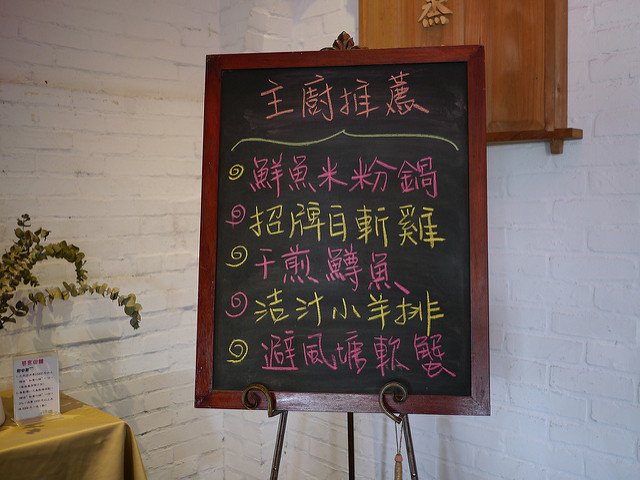 主廚推薦
鮮魚米粉鍋
招牌白斬雞
干煎鱒魚
洁汁小羊排
避風塘軟蟹